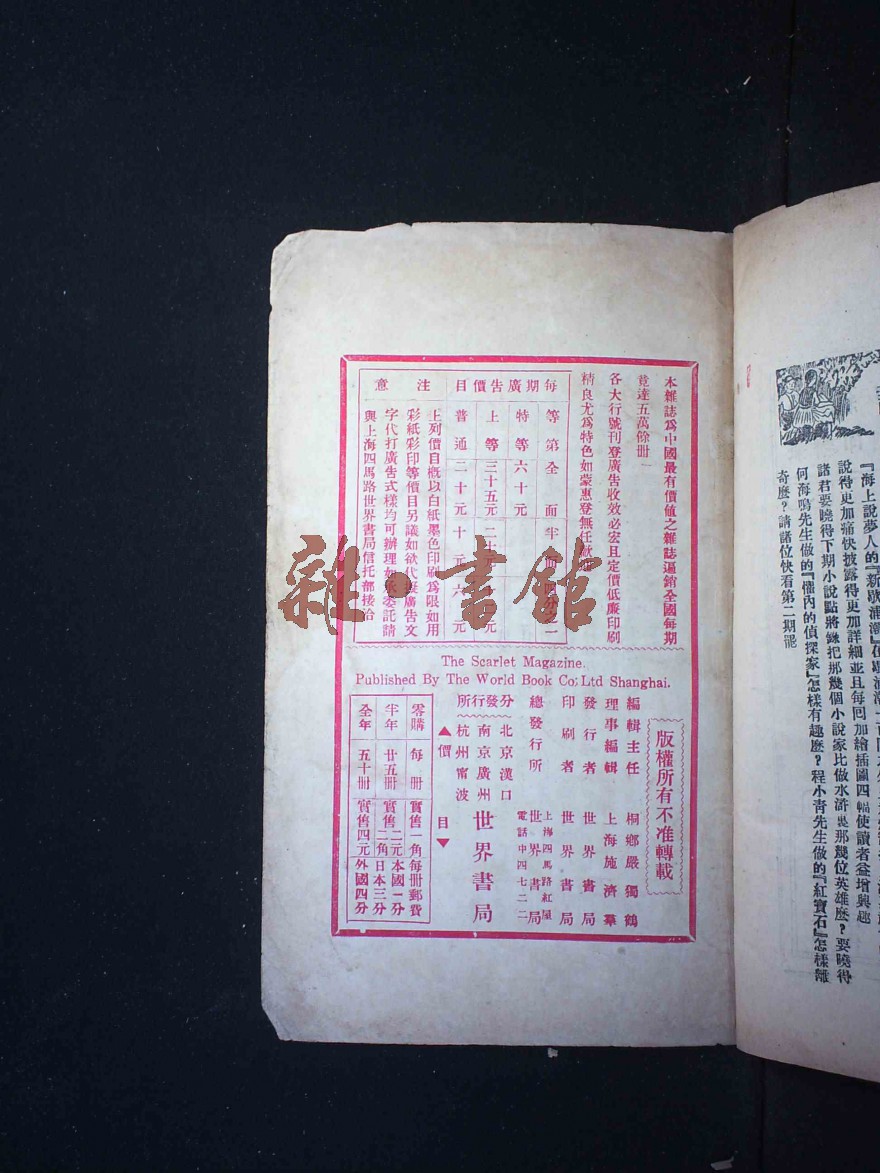 本雜誌爲中國最有價値之雜誌遍銷全國每期
竟達五萬餘册
各大行號刊登廣告收效必宏且定價低廉印刷
精良尤爲特色如蒙惠登無任歡
每期廣告價目
等第 全面 半面 四分之一
特等 六十元
上等 三十五元 二十 元
普通 二十元 十元 六元
注意
上列價目概以白紙墨色印刷爲限如用
彩紙彩印等價目另議如欲代擬廣告文
字代打廣告式樣均可辦理如承委託請
與上海四馬路世界書局信托部接洽
The Scarlet Magazine.
Published By The World Book Co; Ltd Shanghai.
版權所有不准轉載
編輯主任 桐鄉嚴獨鶴
理事編輯 上海施濟羣
發行者 世界書局
印刷者 世界書局
總發行所 上海四馬路紅屋 世界書局 電話中四七二二
分發行所 北京漢口 南京廣州 杭州甯波 世界書局
▲價目▼
零購 每册 實售一角 每册郵費
半年 廿五册 實售二元二角 本國一分 日本三分
全年 五十册 實售四元 外國四分
雜·書館
『海上說夢人的『新歇浦潮』
說得更加痛快披露得更加詳細並且每回加繪插圖四幅使讀者益增興趣
諸君要曉得下期小說點將錄把那幾個小說家比做水滸裏那幾位英雄麽？要曉得
何海鳴先生做的『權內的偵探家』怎樣有趣麽？程小青先生做的『紅寶石』怎樣離
奇麽？請諸位快看第二期罷